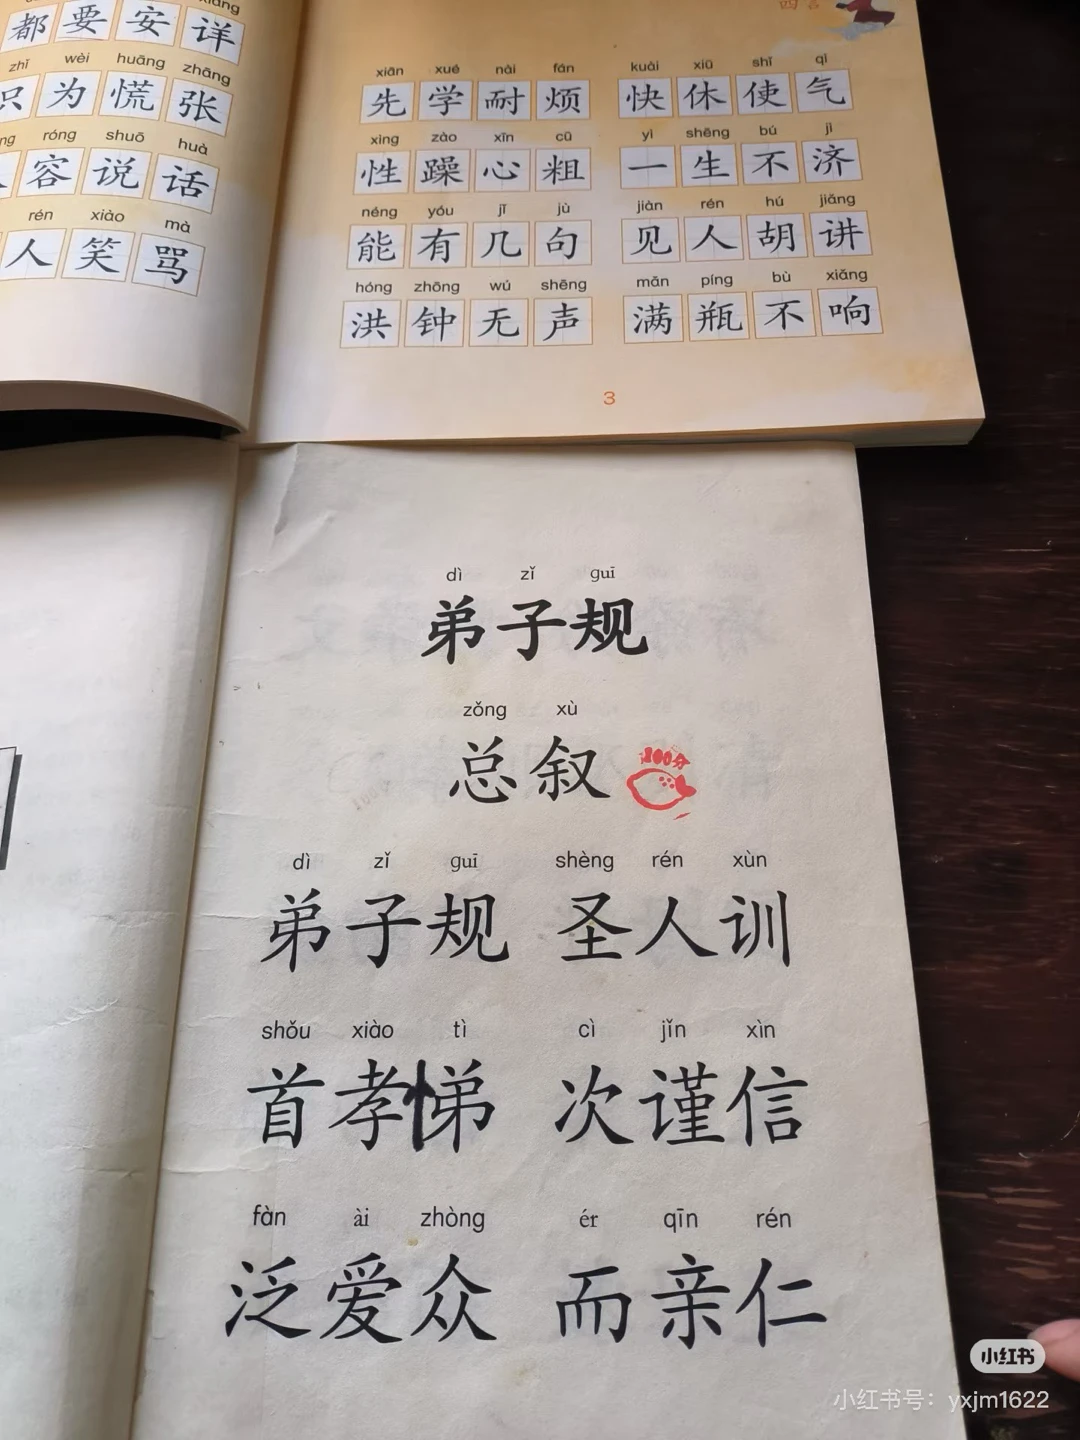 xiáng
都要安详
zhī wèi huāng zhāng
只为慌张
róng shuō huà
容说话
rén xiào mà
人笑骂
四言
xiān xué nài fán kuài xiū shǐ qì
先学耐烦 快休使气
xìng zào xīn cū yì shēng bú jì
性躁心粗 一生不济
néng yǒu jǐ jù jiàn rén hú jiǎng
能有几句 见人胡讲
hóng zhōng wú shēng mǎn píng bù xiǎng
洪钟无声 满瓶不响
3
dì zǐ guī
弟子规
zǒng xù
总叙
100分
dì zǐ guī shèng rén xùn
弟子规 圣人训
shǒu xiào tì cì jǐn xìn
首孝悌 次谨信
fàn ài zhòng ér qīn rén
泛爱众 而亲仁
小红书
小红书号：yxjm1622